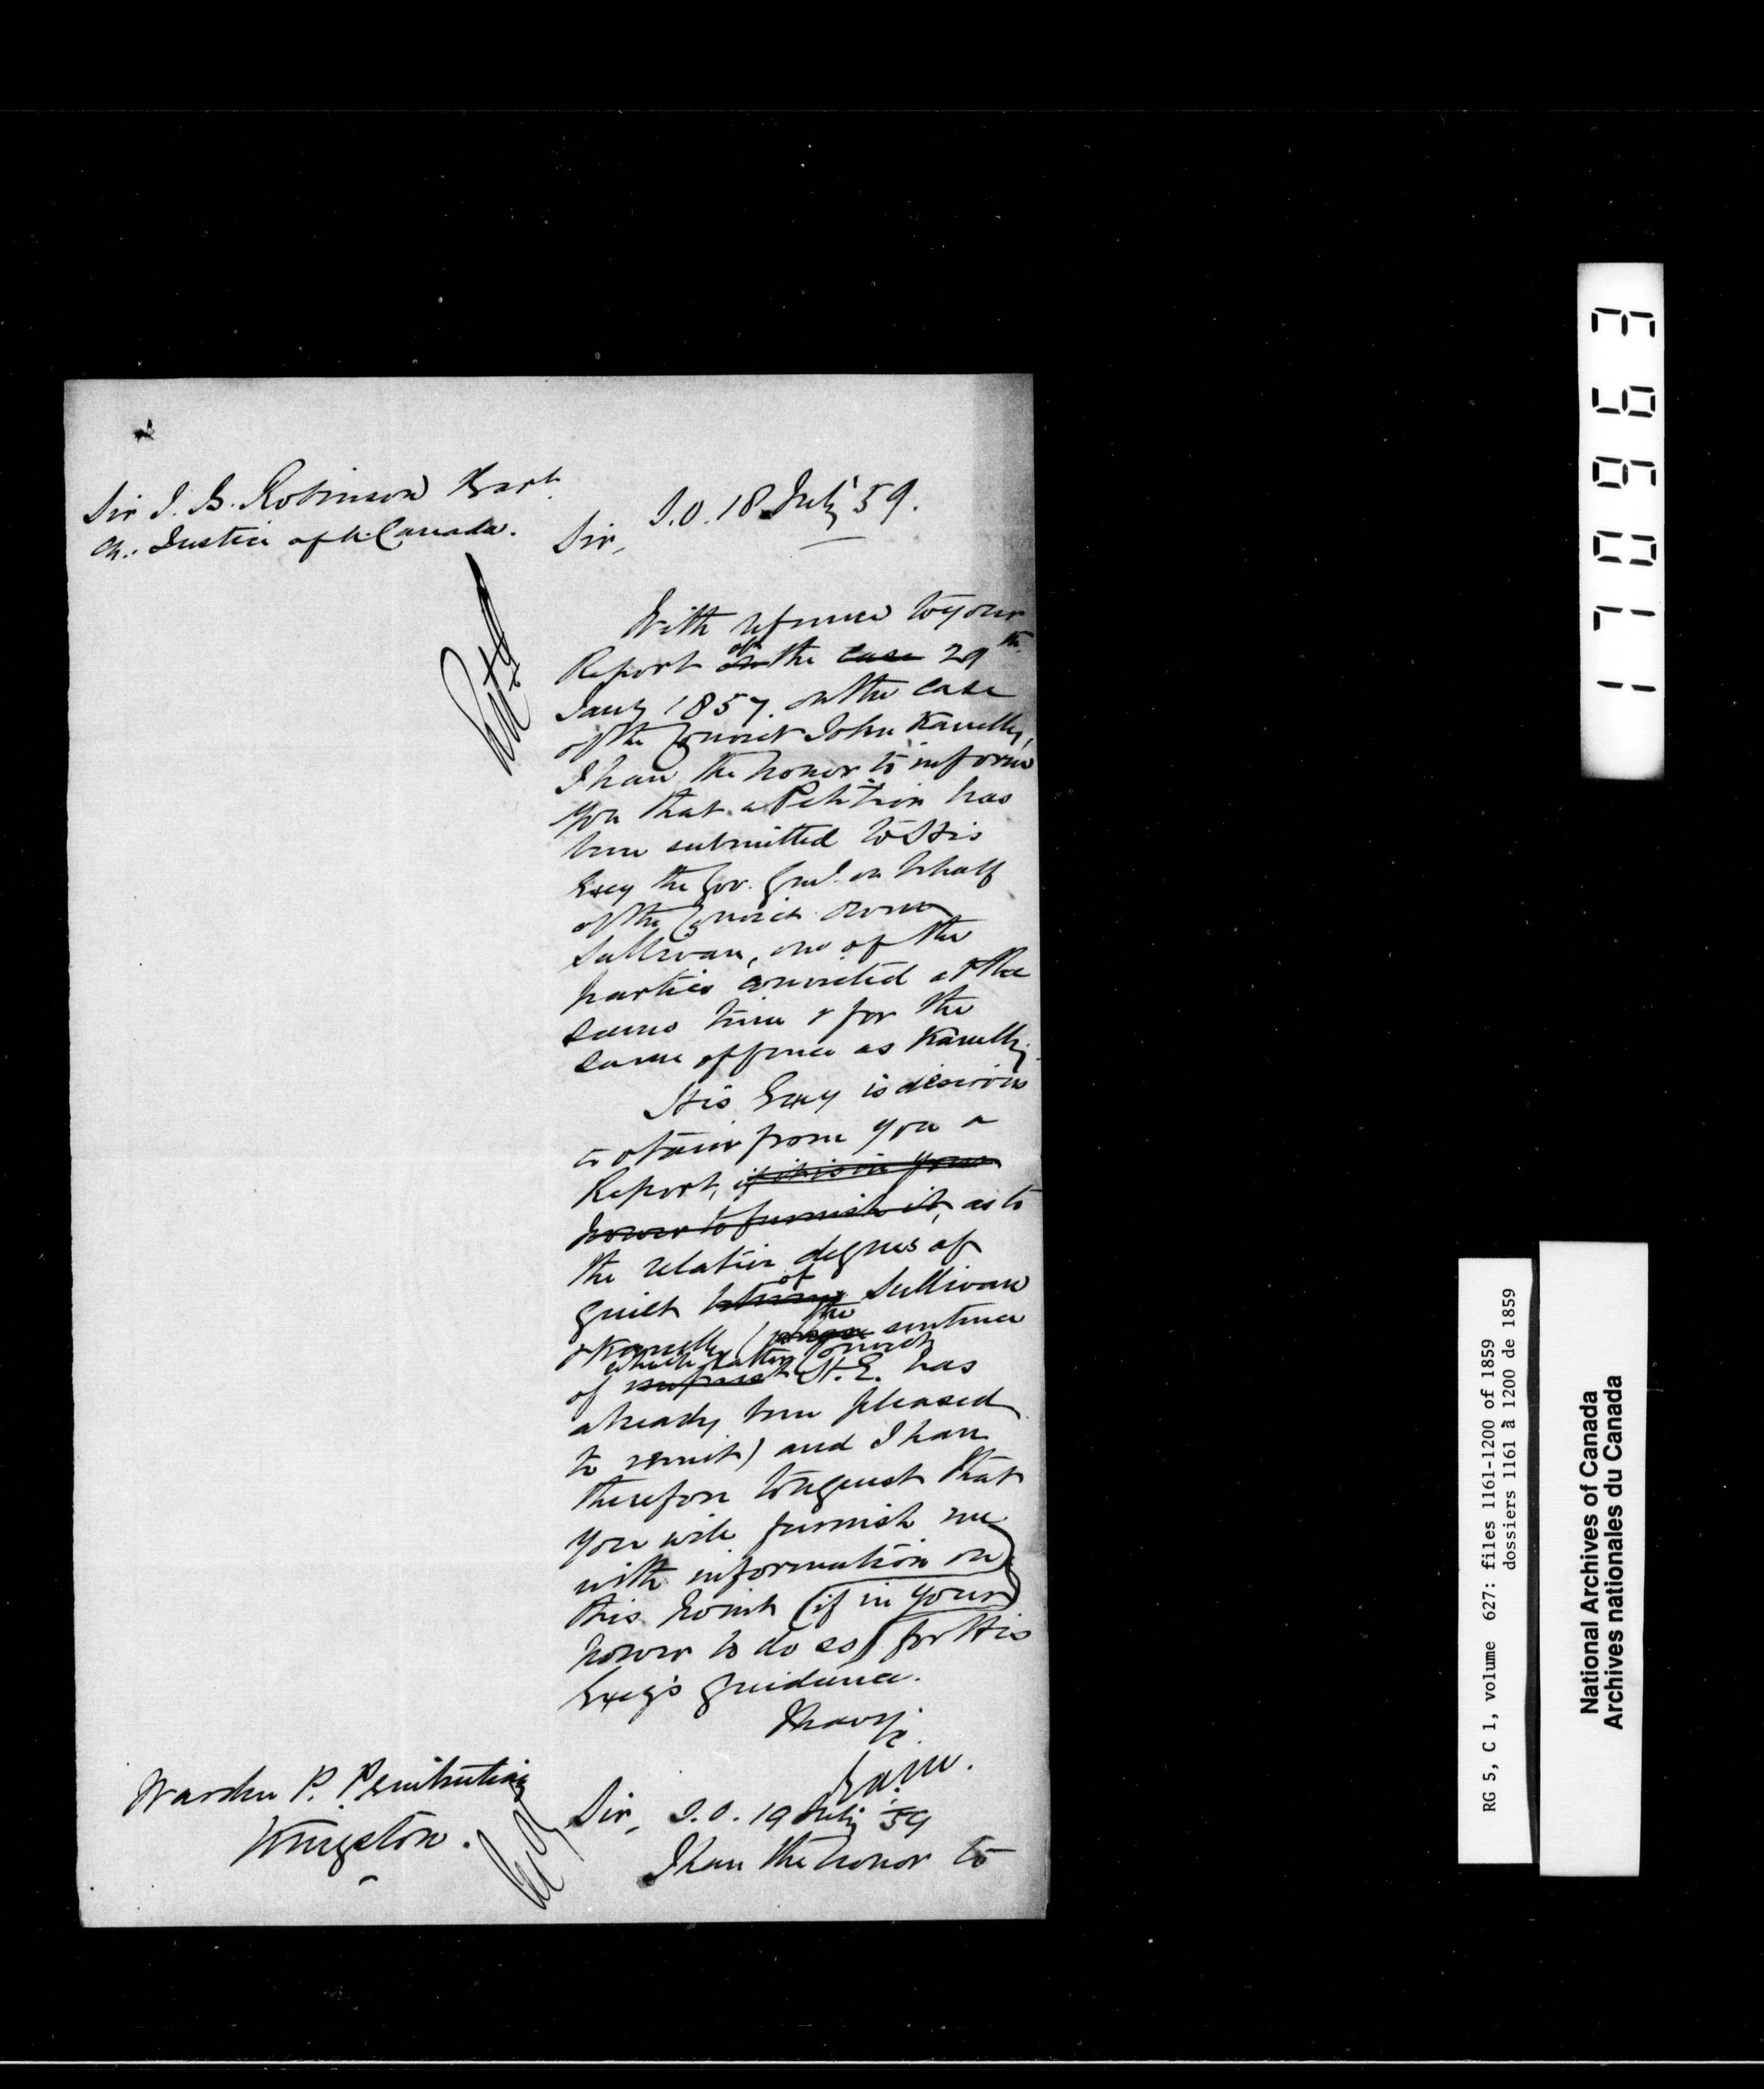 Sir J. B. Robinson Bart.
Ch. Justice of U. Canada.
S.O. 18 July '59.
Sir,
With refrence to your
Report on of the case 29th
Jany 1857. on the case
of the Convict John Kanelly,
I have the honor to inform
you that a Petition has
been submitted to His
Excy the Gov. Genl. on behalf
of the Convict Owen
Sullivan, one of the
parties convicted at the
same time & for the
same offence as Kanelly.
His Excy is desirous
to obtain from you a
Report, if it is in your
power to furnish it, as to
the relative degrees of
guilt between of Sullivan
& Kanelly (whose the sentence
of which latter Convict H.E. has
already been pleased
to remit) and I have
therefore to request that
you will furnish me
with information on
this point (if in your
power to do so) for His
Excy's guidance.
I have &c
Warden P. Penitentiary
Kingston.
Sir, S.O. 19 July 59
I have the honor to
170963
RG 5, C 1, volume 627: files 1161-1200 of 1859
dossiers 1161 à 1200 de 1859
National Archives of Canada
Archives nationales du Canada